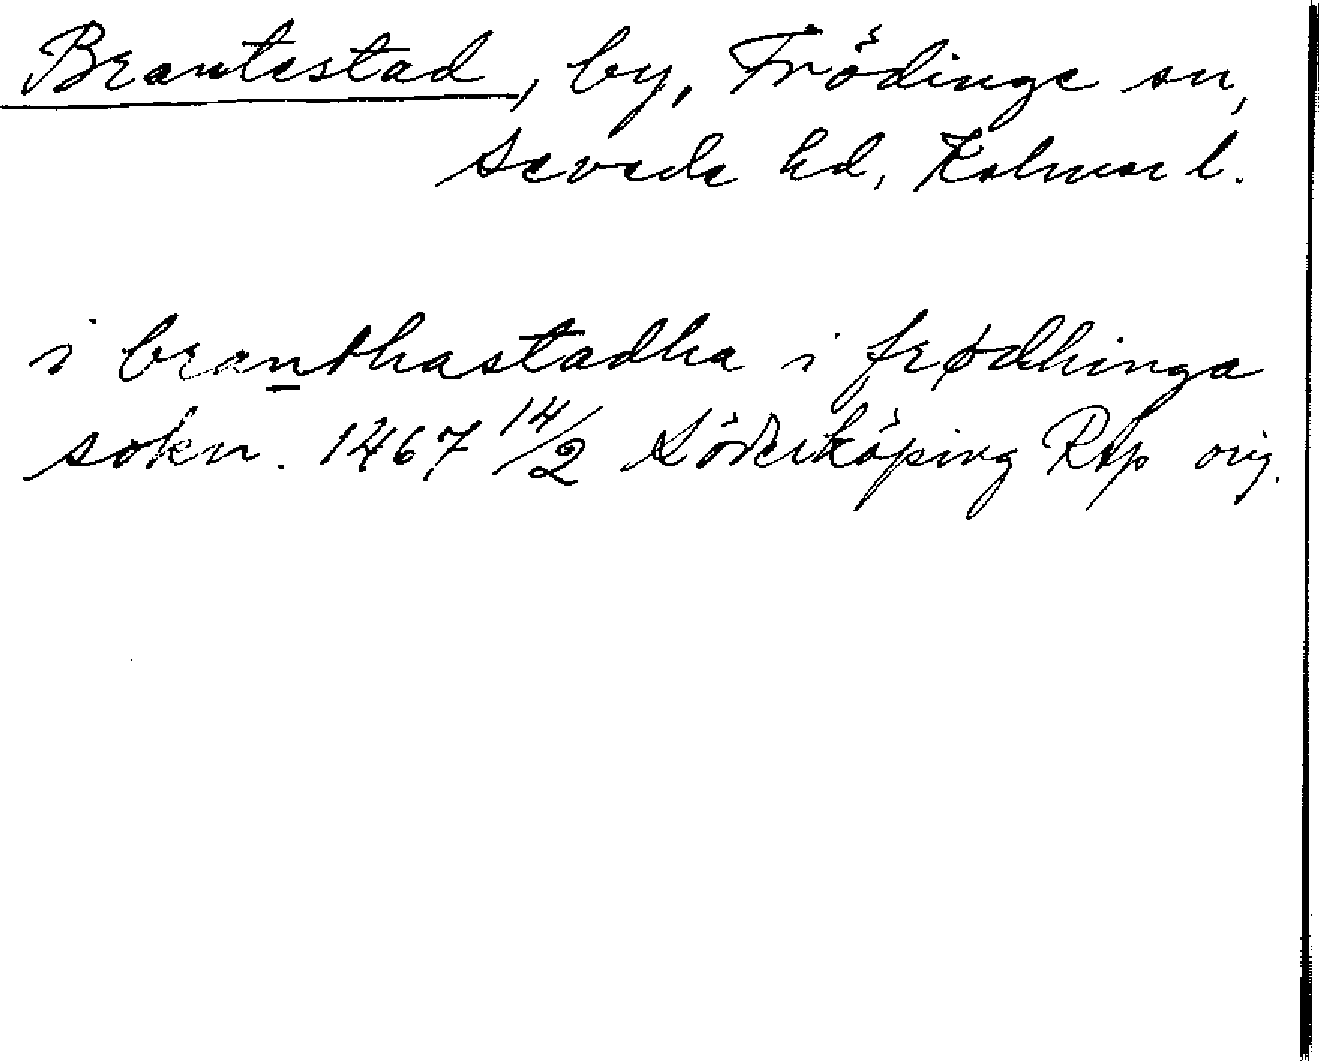 Brantestad, by, Frödinge sn,
Sevede hd, Kalmar l.
i branthastadha i frødhinga
sokn. 1467 14/2 Söderköping RAp orig.